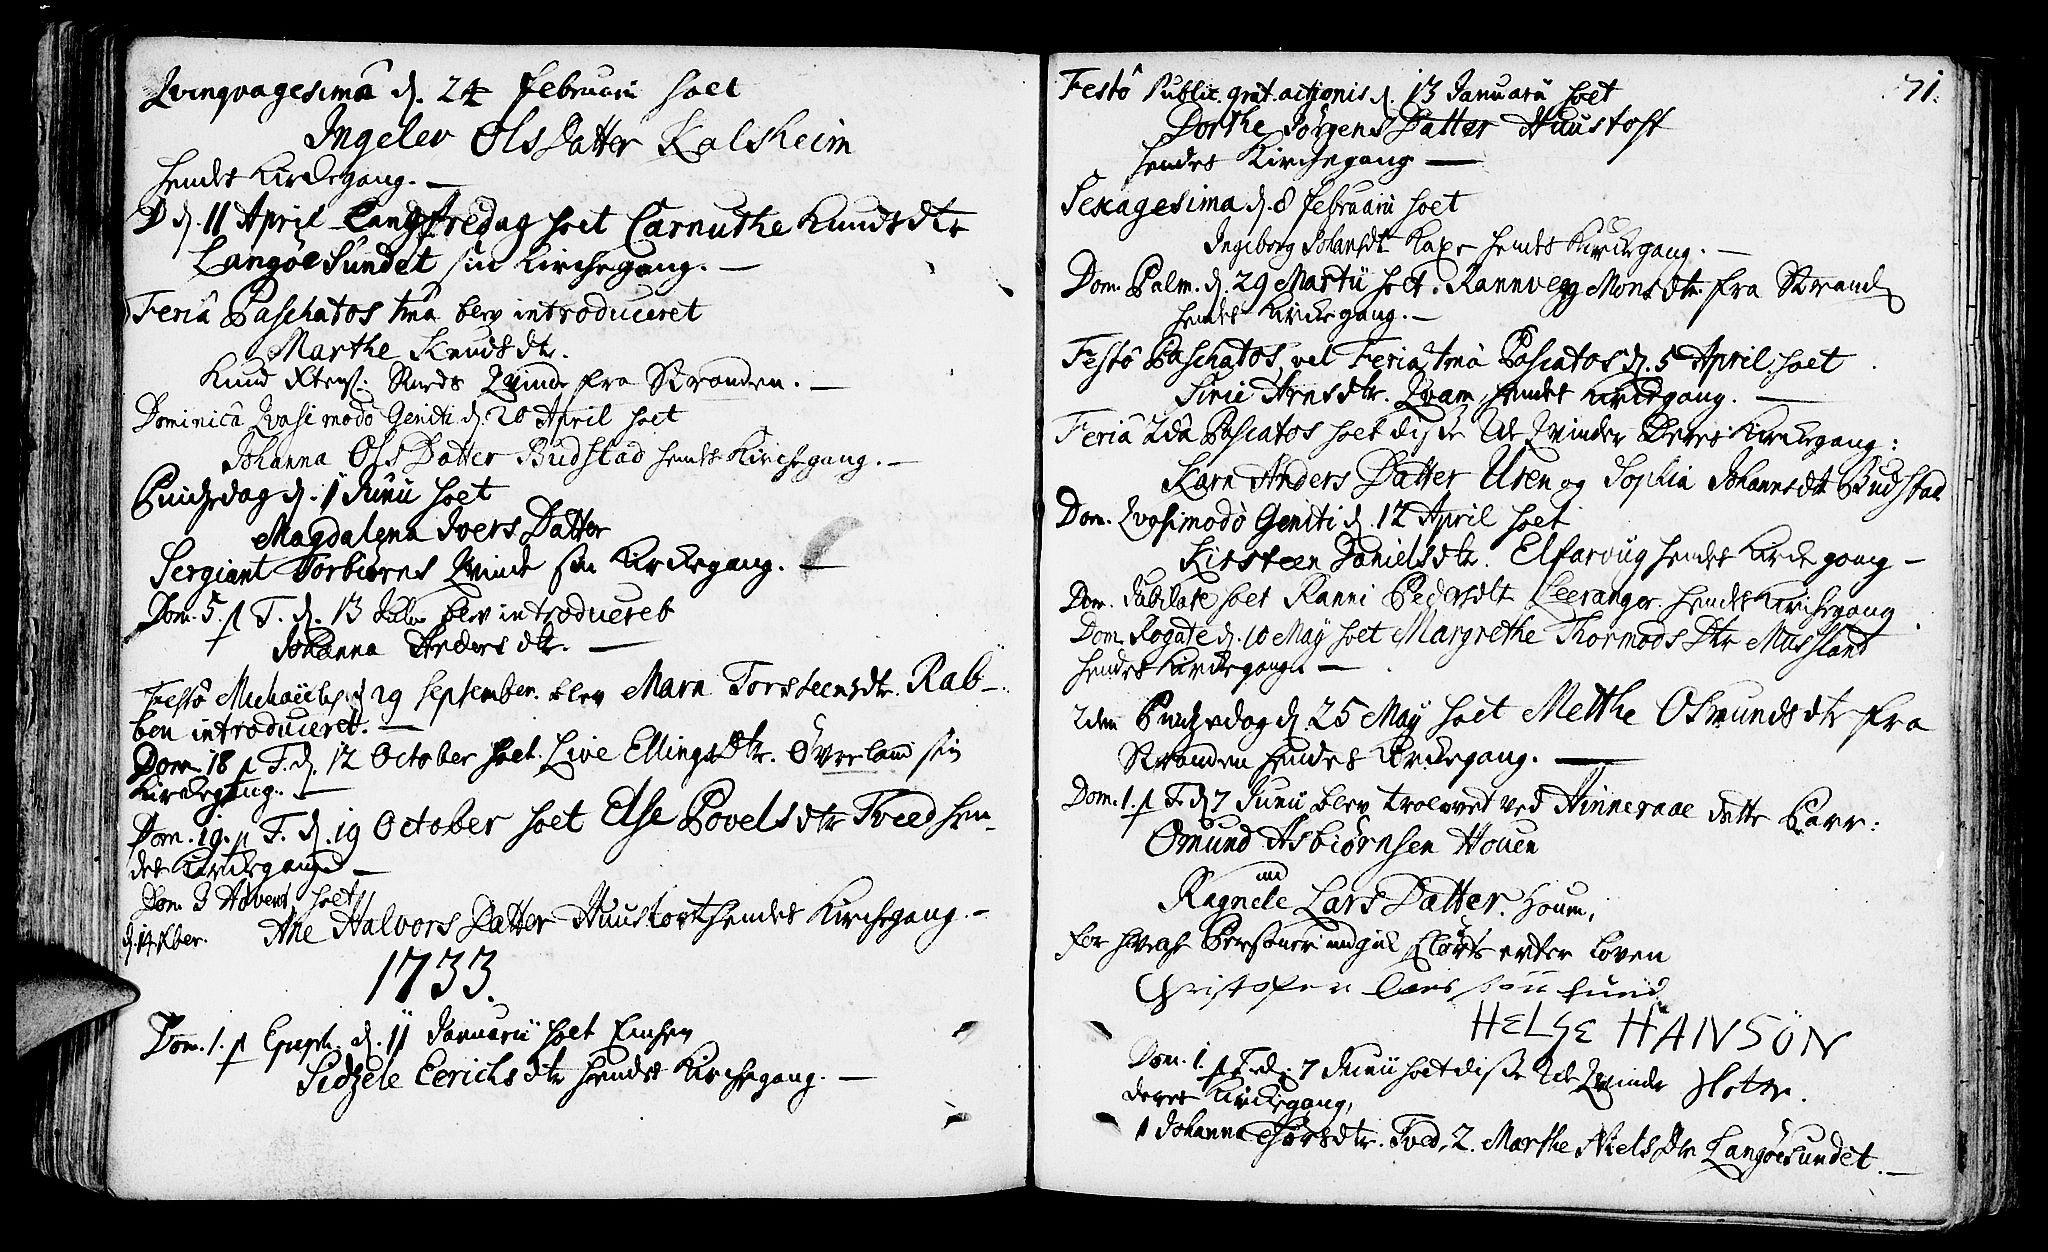 Qvinqvagesimâ d. 24 februarii holt
Ingelev Ols Datter Kalsheim
hendes Kirckegang. —
D d. 11 April Langfredag holt Carnuthe Knuds dtr
Langøe Sundet sin Kirchegang. —
Feriâ Paschatos 1mâ blev introduceret
Marthe Knuds dtr.
Knud Qvinde fra Stranden. —
Dominicâ Qvasimodo Geniti d. 20 April holt
Johanna Ols Datter Budstad hendes Kirchegang. —
Pindzdag d. 1 Junii holt
Magdalena Ivers Datter
Sergiant Torbiørns Qvinde sin Kirckegang. —
Dom. 5. p T. d. 13 Julii blev introduceret
Johanna Anders dtr. —
Festô Michaëlis d 29 September. blev Marn Torsteens dtr. Rab-
ben introduceret. —
Dom. 18 p T. d. 12 October holt Live Ellings dtr. Øverland sin
Kirckegang. —
Dom. 19. p T. d. 19 October holt Else Povels dtr Tved hen-
des Kirckegang —
Dom 3 Advent. holt
d. 14 Xber. Ane Halvors Datter Huustoft hendes Kirchegang. —
1733.
Dom. 1. p Epiph. d. 11 Januarii holt
Sidzele Eerichs dtr hendes Kirchegang. —
71.
Festô Public. grat. actionis d. 13 Januarii holt
Dorthe Jörgens Datter Huustoft
hendes Kirchegang —
Sexagesima d. 8 februarii holt
Ingeborg Johansdt hendes Kirckegang. —
Dom. Palm. d. 29 Martii holt. Rannvegg Mons dtr. fra Strand
hendes Kirckegang. —
Festô Paschatos, vel Feriâ 1mâ Pascatos d. 5 April. holt
Sirie Arns dtr. Qvam hendes Kirckegang. —
Feriâ 2dâ Pascatos holt disse 2de Qvinder Deres Kirckegang:
Karn Anders Datter Uren og Sophia Johanns dtr Budstad
Dom. Qvasimodò Geniti d. 12 April holt
Kirsteen Daniels dtr. Elfarvüg hendes Kirckegang —
Dom. Jubilate holt Ranni Peders dtr Leeranger. hendes Kirchegang
Dom. Rogate d. 10 May holt Margrethe Thormods Dtr Musland
hendes Kirckegang. —
2den Pindzedag d. 25 May holt Metthe Osmunds dtr fra
Stranden hendes Kirckegang. —
Dom. 1. p T. d 7 Junii blev trolovet ved Hinneraae dette Parr:
Omund Asbiørnsen Houen
md
Ragnele Lars Datter. Houen,
for hvilche Personer indgik Cloers efter Loven
Christofen Lars sön Lund
HELGE HANSÖN
Dom. 1. p T. d. 7 Junii holt disse 2de Qvinder
deres Kirckegang,
1 Johanna Thørs dtr. Tved, 2. Marthe Niels Dtr Langøesundet. —